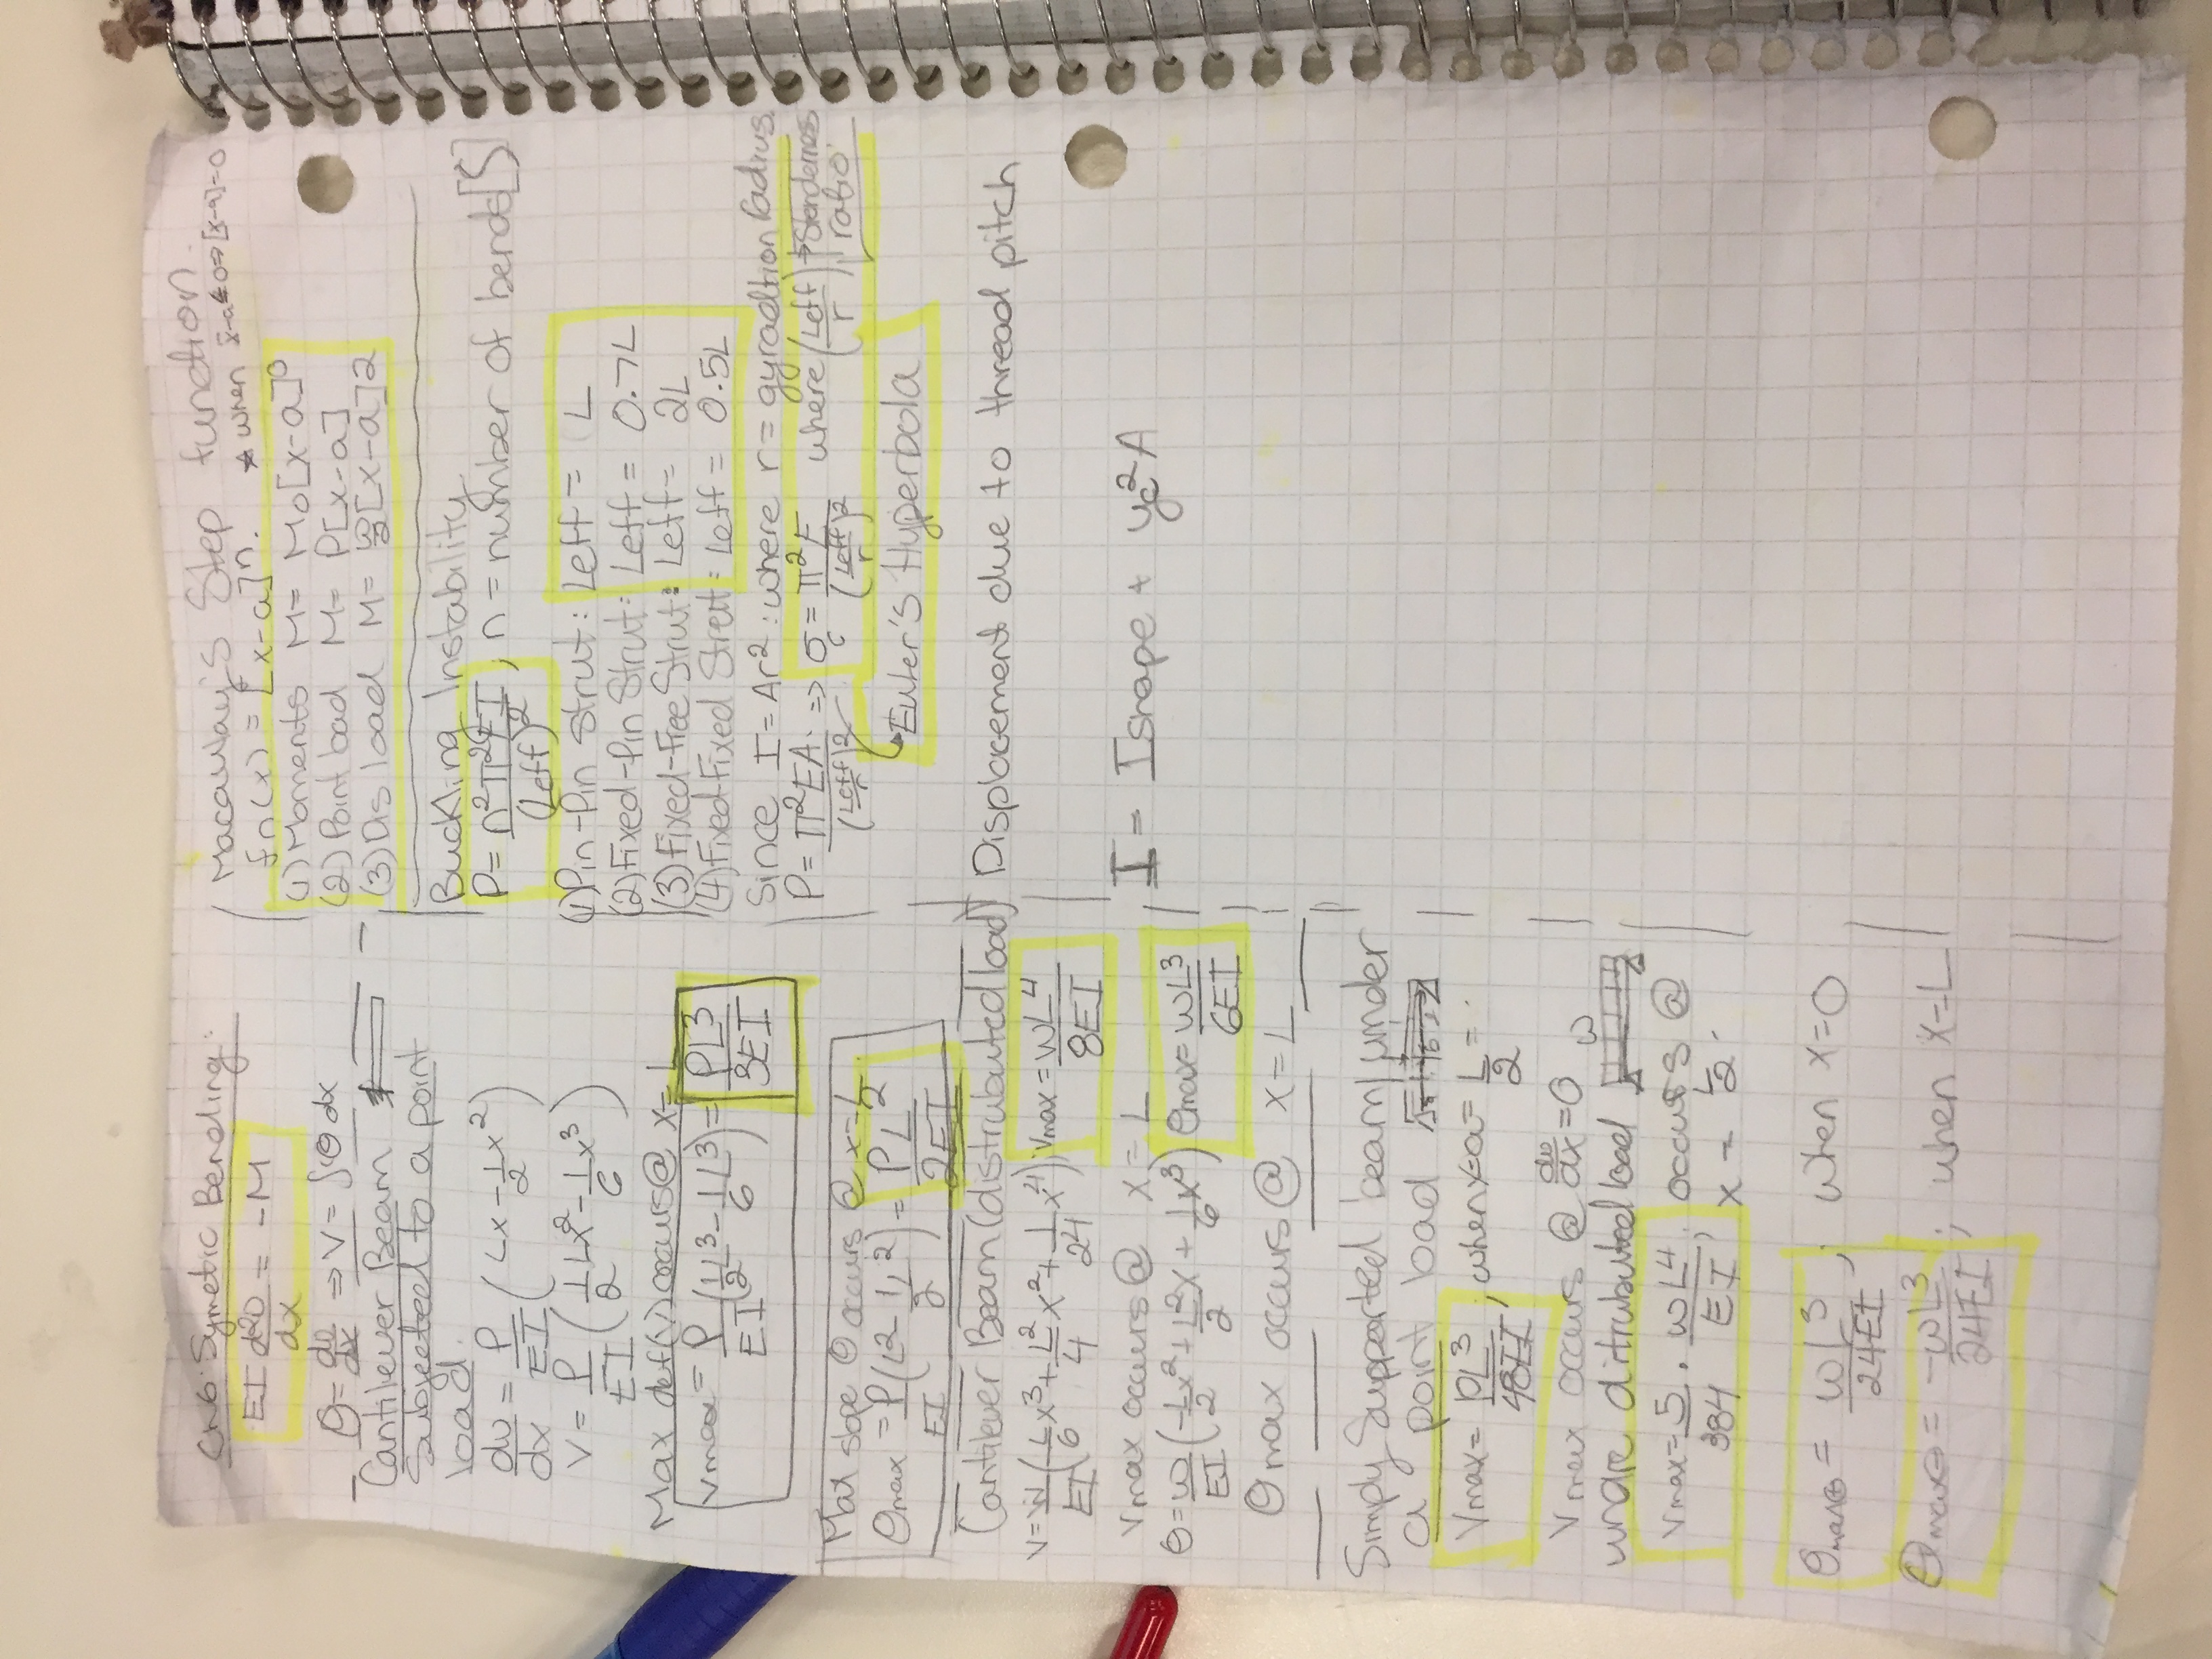 Ch6: Symetric Bending:
EI d²v/dx = -M
θ = dv/dx ⇒ V = ∫θ dx
Cantilever Beam
Subjected to a point
load.
dv/dx = P/EI (Lx - 1/2 x²)
V = P/EI (1/2 Lx² - 1/6 x³)
Max def(v) occurs @ x=L
Vmax = P/EI (1/2 L³ - 1/6 L³) = PL³/3EI
Max slope θ occurs @ x=L
θmax = P/EI (L² - 1/2 L²) = PL²/2EI
Cantiler Beam (distrubuted load)
V = w/EI (-L/6 x³ + L²/4 x² + 1/24 x⁴) Vmax = wL⁴/8EI
Vmax occurs @ x = L
θ = w/EI (-1/2 x² + L²/2 x + 1/6 x³) θmax = wL³/6EI
θmax occurs @ x = L
Simply Supported beam under
a point load
Vmax = PL³/48EI ; when x=a= L/2
Vmax occurs @ dv/dx = 0
under ditrubuted load w
Vmax = 5/384 · wL⁴/EI ; occurs @
x = L/2.
θmax = wL³/24EI ; when x=0
θmax = -wL³/24EI ; when x=L
Macaulay's Step function.
fn(x) = [x-a]ⁿ. * when x-a≤0 ⇒ [x-a]=0
(1) Moments M = Mo[x-a]⁰
(2) Point load M = P[x-a]
(3) Dis load M = w/2 [x-a]²
Buckling Instability
P = n²π²EI/(Leff)² , n = number of bends[ʃ]
(1) Pin-Pin Strut: Leff = L
(2) Fixed-Pin Strut: Leff = 0.7L
(3) Fixed-Free Strut: Leff = 2L
(4) Fixed-Fixed Strett: Leff = 0.5L
Since I = Ar² : where r = gyradtion radius.
P = π²EA/(Leff/r)² ⇒ σc = π²E/(Leff/r)² where (Leff/r) → Slenderness ratio.
↳ Euler's Hyperbola
Displacement due to thread pitch
I = Ishape + yc²A